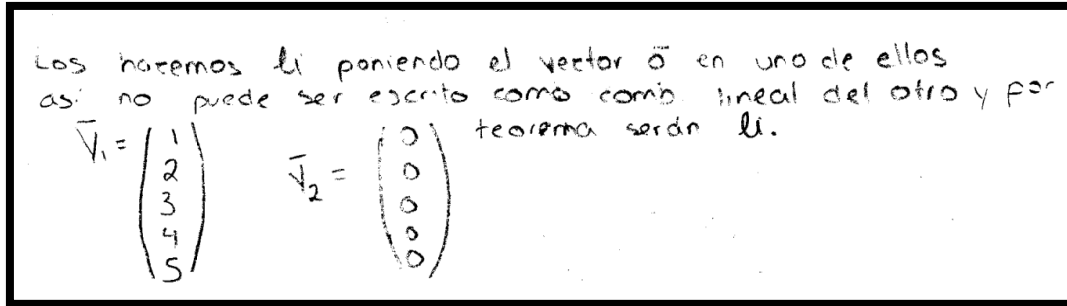 Los hacemos li poniendo el vector ō en uno de ellos
así no puede ser escrito como comb. lineal del otro y por
teorema serán li.
V̄₁ = (1 2 3 4 5) V̄₂ = (0 0 0 0 0)